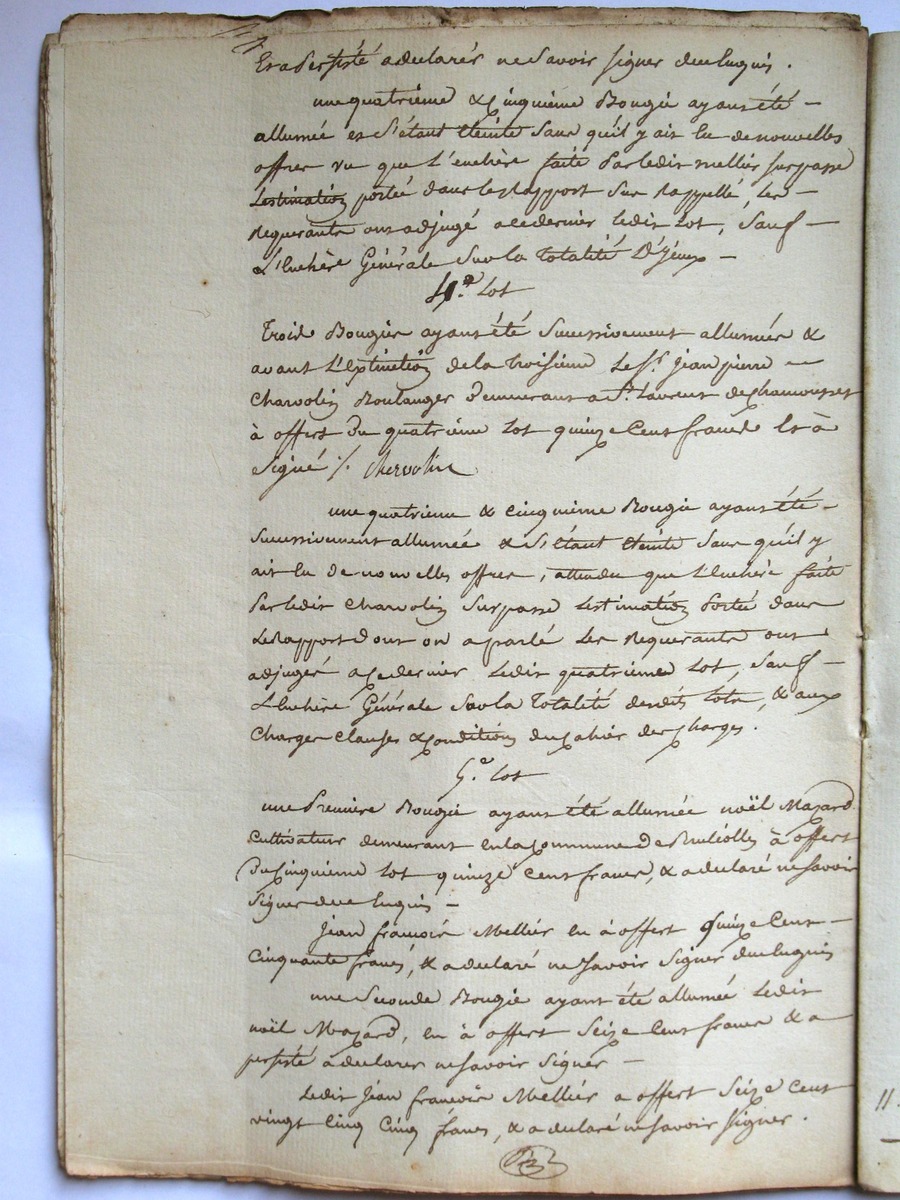 Et a persisté a declarér ne Savoir signer duement enquis.
une quatriême & Cinquiême Bougie ayant été –
allumée et S'étant éteinte Sans qu'il y ait Eu de nouvelles
offres vu que L'enchère faite Par ledit mellier surpasse
L'estimation portée dans le Rapport Sus Rappellé, les –
Requerants ont adjugé a ce dernier ledit lot, Sauf –
L'Enchère Générale Sur la Totalité D'Yceux –
4.e Lot
Trois Bougies ayant été Successivement allumées &
avant L'extinction de la troisième Le S.r Jean pierre –
Charvolin Boulanger Demeurant a S.t Laurent de Chamousset
à offert Du quatriême Lot quinze Cent francs Et à
Signé ./. Chervolin
une quatrieme & cinquième Bougie ayant été –
Successivement allumée & S'étant éteinte Sans qu'il y
ait Eu De nouvelles offres, attendu que L'Enchère faite
Par ledit Charvolin Surpasse L'estimation Portée dans
Le Rapport Dont on a parlé Les Requerants ont
adjugér a ce dernier Ledit quatrieme Lot, Sauf –
L'Enchère Générale Sur la Totalité desdits Lots, & aux
Charges Clauses & Conditions du Cahier des Charges.
5.e Lot
une Premiere Bougie ayant été allumée noël Mazard
Cultivateur demeurant en la Commune De Bruliolles à offert
Du Cinquieme Lot quinze Cent francs, & a declaré ne Savoir
Signer duement Enquis –
Jean francois Mellier en à offert Quinze Cent –
Cinquante francs, & a declaré ne Savoir Signer duement Enquis
une Seconde Bougie ayant été allumée Ledit
noël Mazard, en à offert Seize Cent francs & a
persisté a declarer ne Savoir Signer –
Ledit Jean francois Mellier a offert Seize Cent
vingt Cinq Cinq francs, & a declaré ne Savoir Signer.